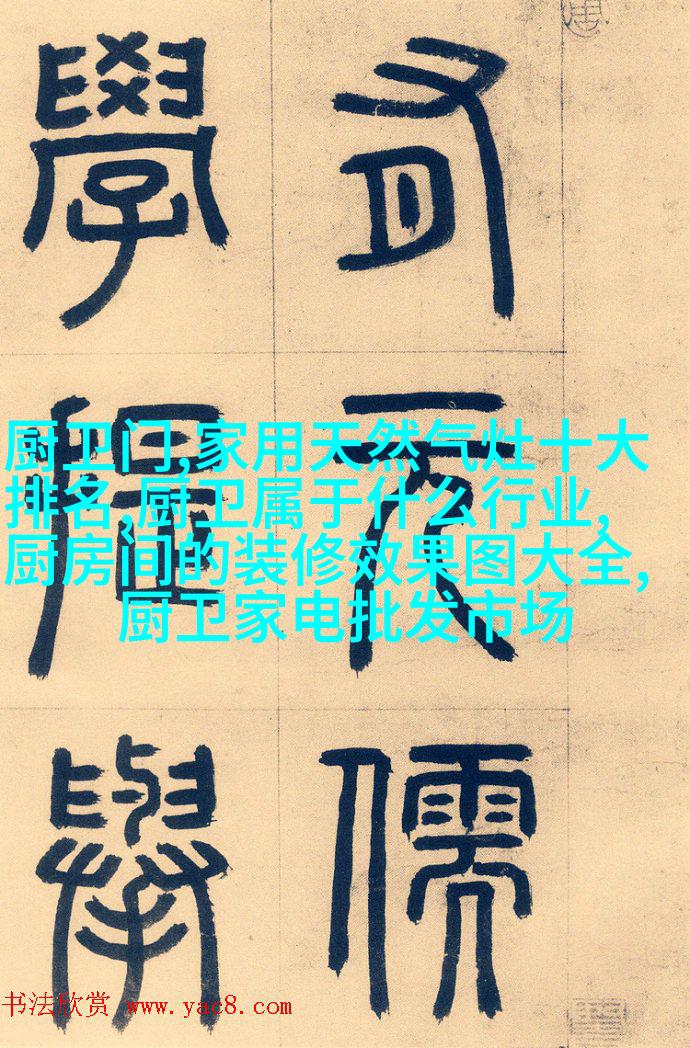 有元儒
學提舉
厨卫门,家用天然气灶十大
排名,厨卫属于什么行业,
厨房间的装修效果图大全,
厨卫家电批发市场
书法欣赏 www.yac8.com